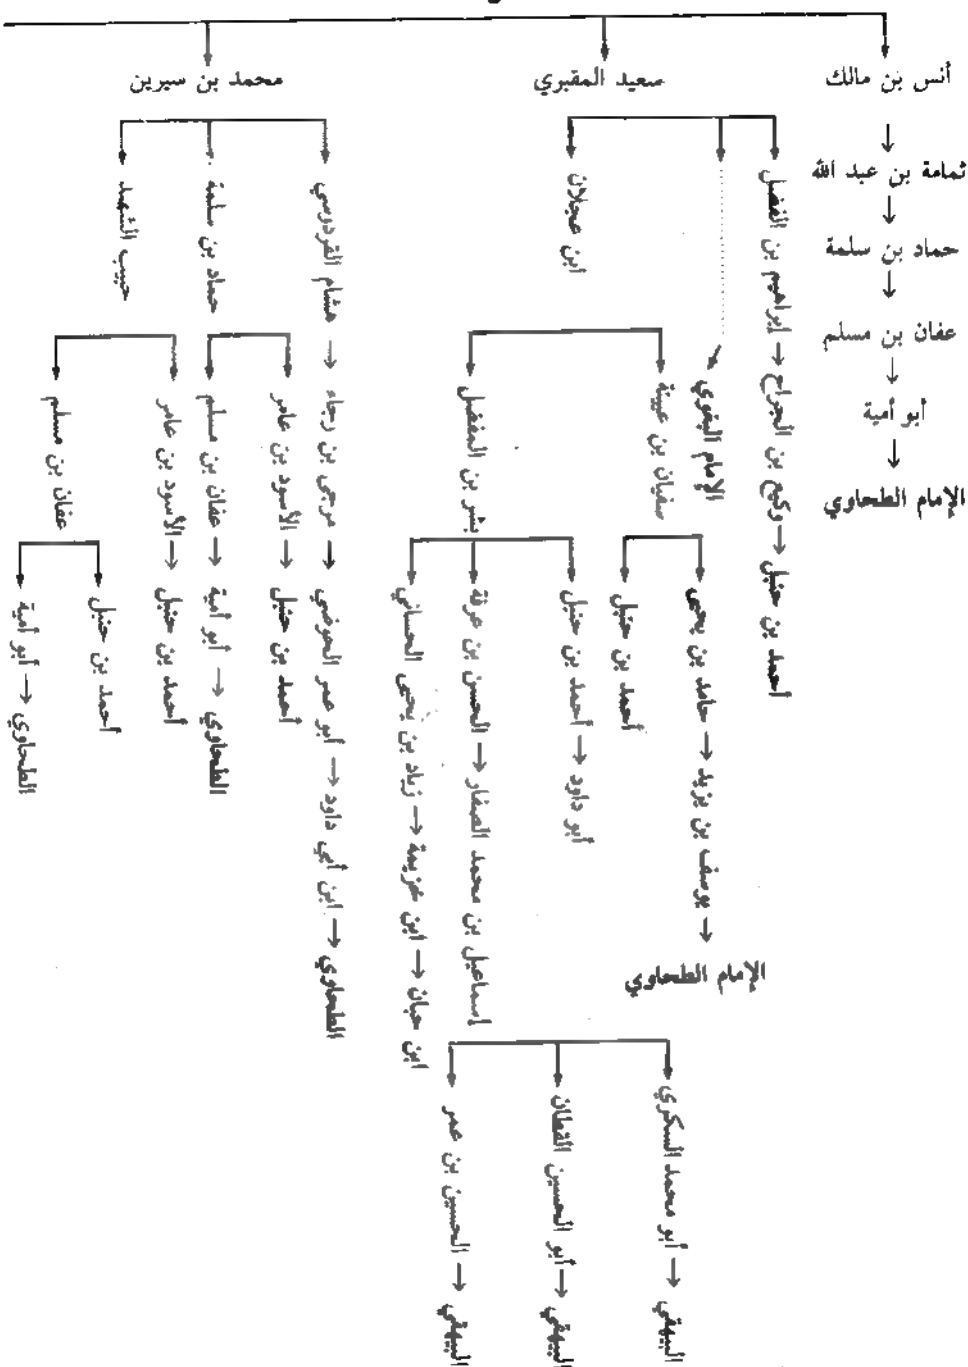 أنس بن مالك
ثمامة بن عبد الله
حماد بن سلمة
عفان بن مسلم
أبو أمية
الإمام الطحاوي
سعيد المقبري
إبراهيم بن الفضل → وكيع بن الجراح → أحمد بن حنبل
الإمام البغوي
ابن عجلان
سفيان بن عيينة
حامد بن يحيى → يوسف بن يزيد →
الإمام الطحاوي
أحمد بن حنبل
بشر بن المفضل
أحمد بن حنبل → أبو داود
الحسن بن عرفة → إسماعيل بن محمد الصفار
زياد بن يحيى الحساني → ابن خزيمة → ابن حبان
أبو محمد السكري → البيهقي
أبو الحسين القطان → البيهقي
الحسين بن عمر → البيهقي
محمد بن سيرين
هشام القردوسي → مرجى بن رجاء → أبو عمر الحوضي → ابن أبي داود → الطحاوي
حماد بن سلمة
الأسود بن عامر → أحمد بن حنبل
عفان بن مسلم → أبو أمية → الطحاوي
حبيب الشهيد
الأسود بن عامر → أحمد بن حنبل
عفان بن مسلم
أحمد بن حنبل
أبو أمية → الطحاوي